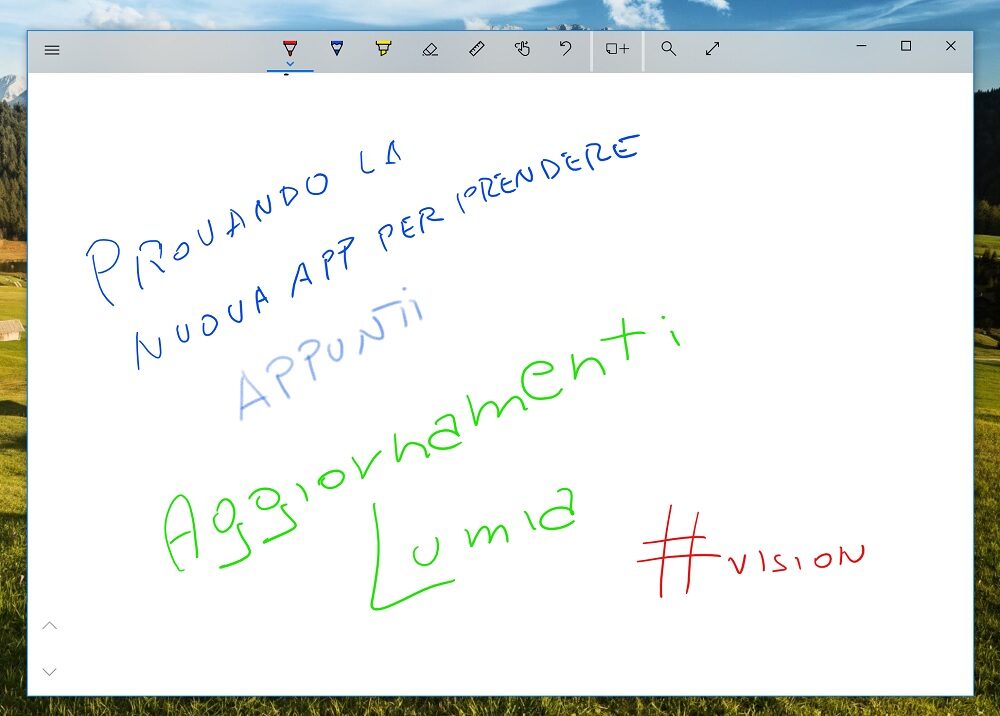 PROVANDO LA
NUOVA APP PER PRENDERE
APPUNTI
Aggiornamenti
Lumia
#VISION